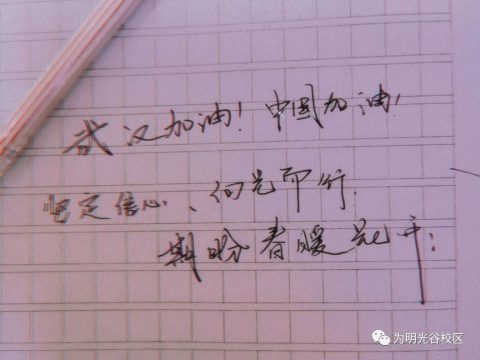 武汉加油！中国加油！
坚定信心、向光而行.
期盼春暖花开：
为明光谷校区